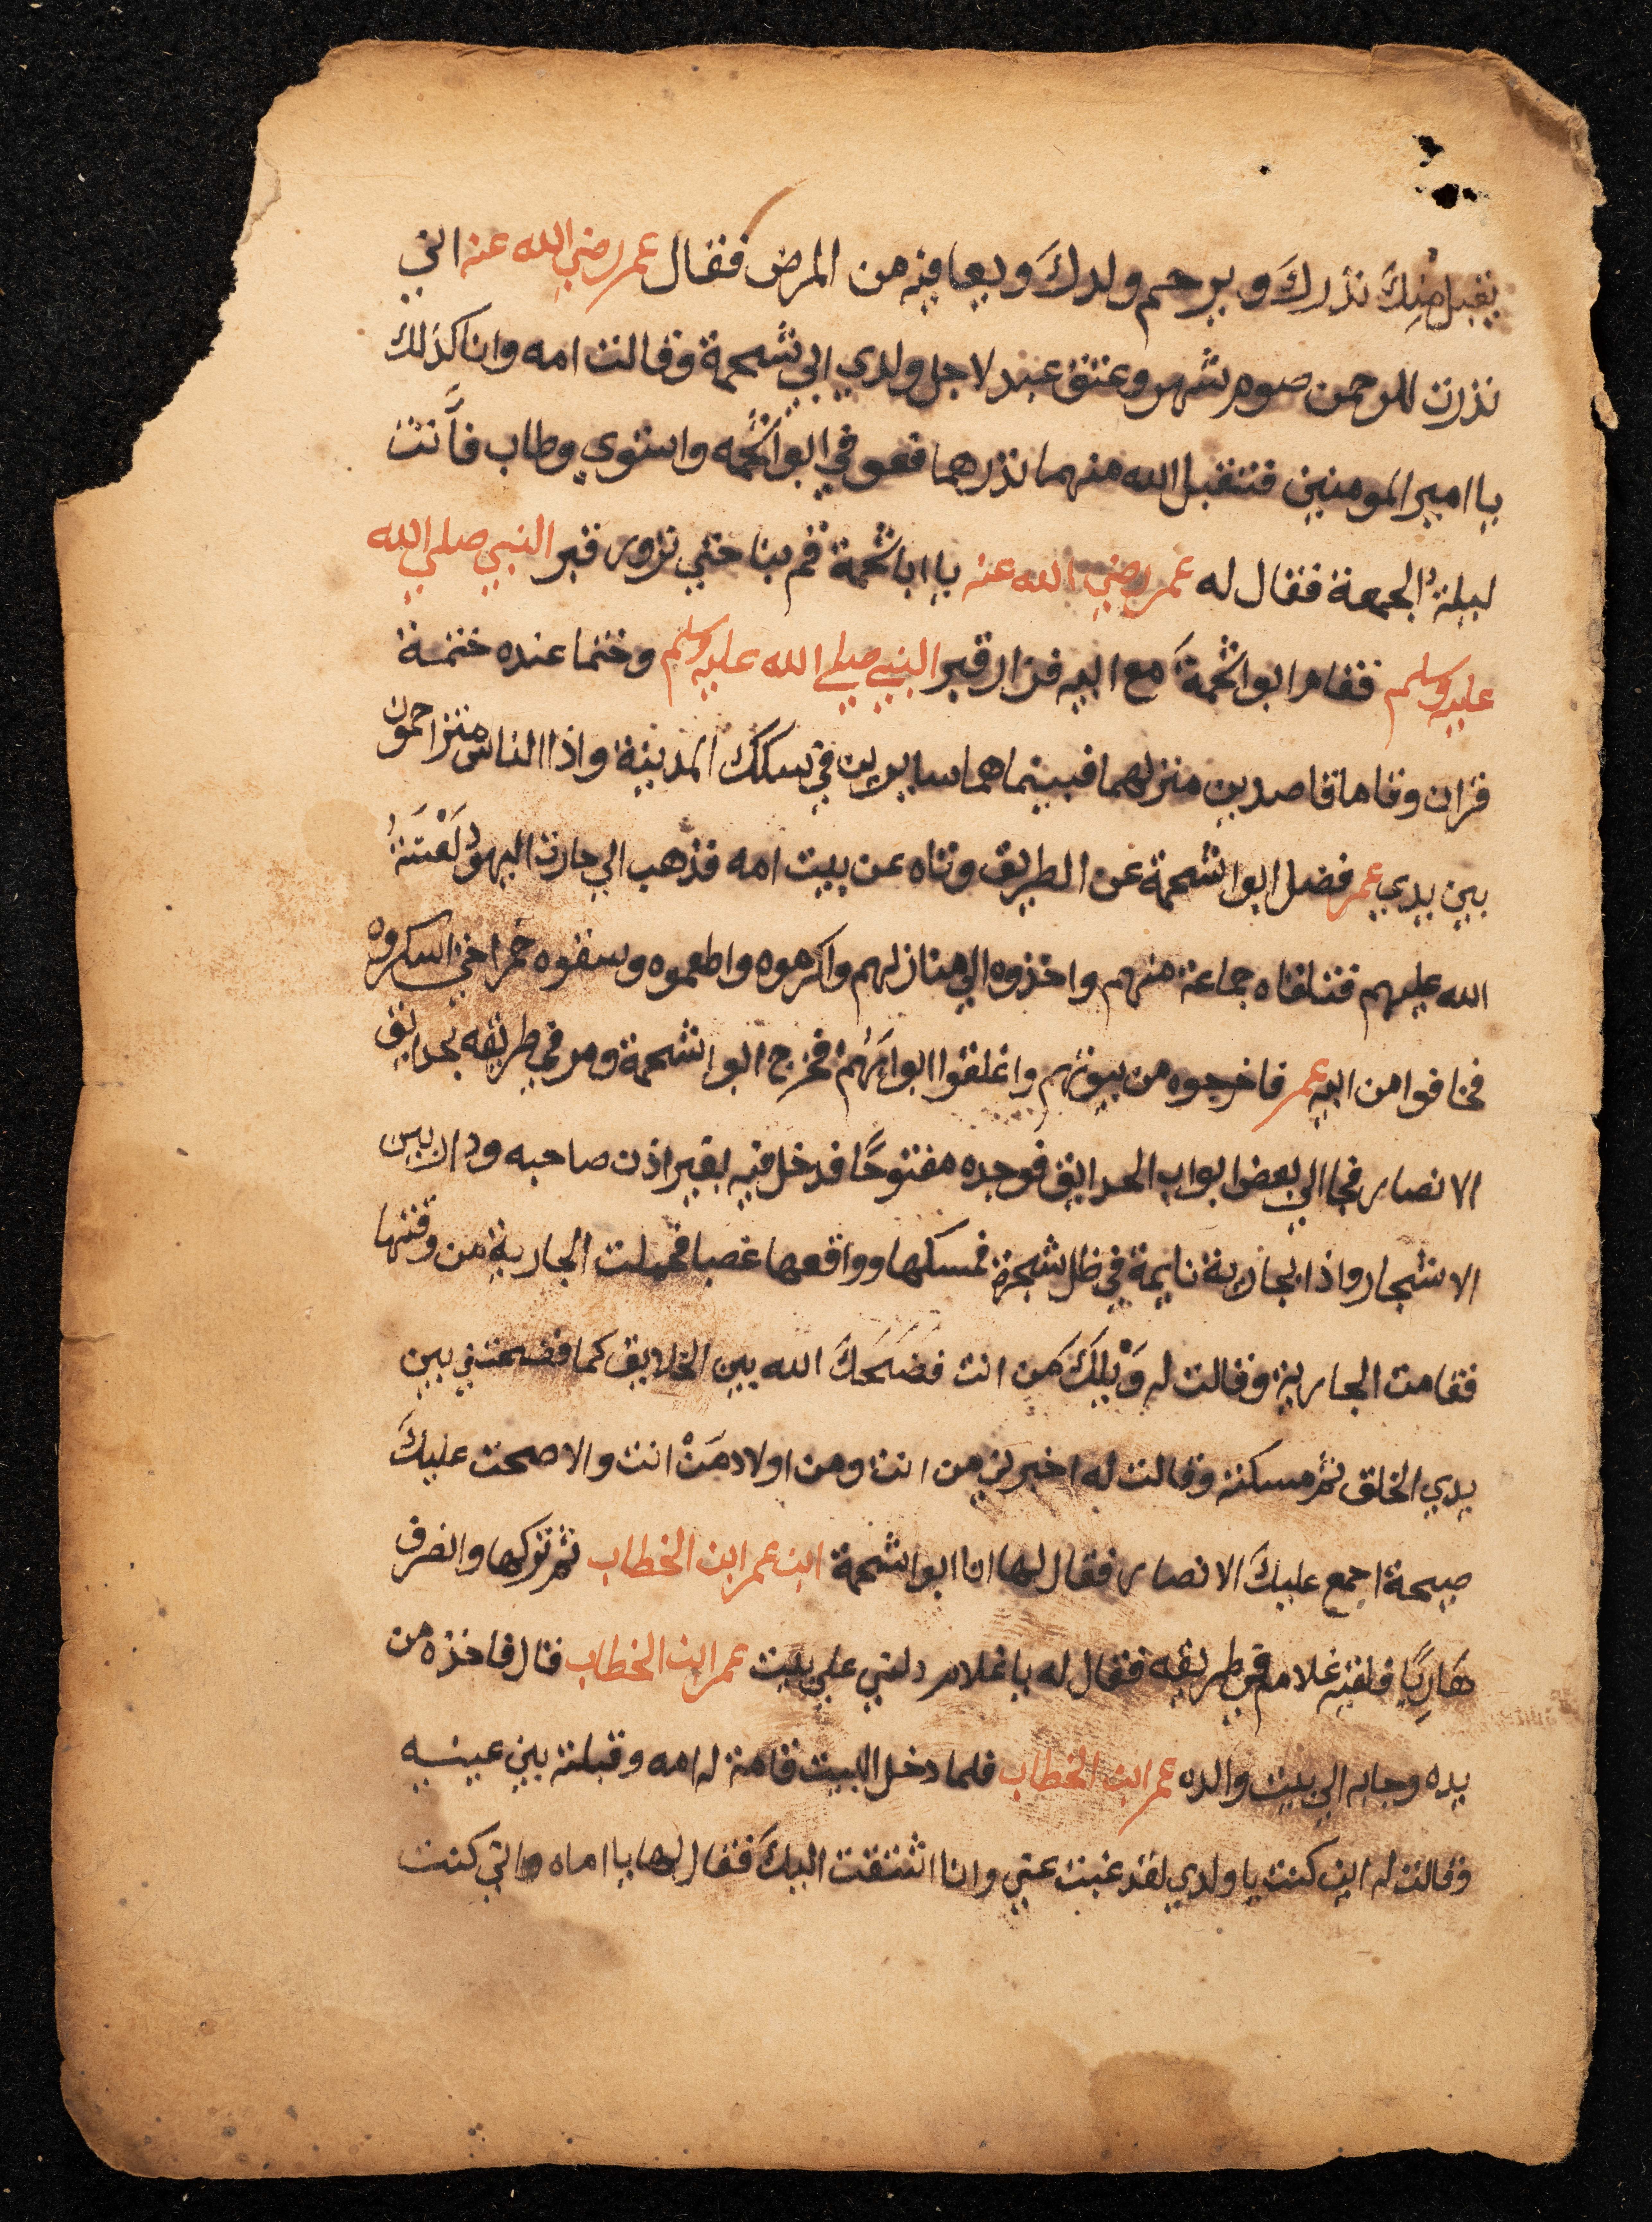 يقبل منك نذرك ويرحم ولدك ويعافيه من المرض فقال عمر رضي الله عنه اني
نذرت للرحمن صوم شهر وعتق عبد لاجل ولدي ابي شحمة وقالت امه وانا كذلك
يا امير المومنين فتقبل الله منهما نذرهما فعوفي ابوا شحمه واستوي وطاب فأنت
ليلة الجمعة فقال له عمر رضي الله عنه يا ابا شحمة قم بنا حتي نزور قبر النبي صلي الله
عليه وسلم فقام ابوا شحمة مع ابيه فزار قبر النبي صلي الله عليه وسلم وختما عنده ختمة
قران وقاما قاصدين منزلهما فبينما هما سايرين في سكك المدينة واذا الناس متزاحمون
بين يدي عمر فضل ابوا شحمة عن الطريق وتاه عن بيت امه فذهب الي حارت اليهود لَعْنَةُ
الله عليهم فتلقاه جماعة منهم واخذوه الي منازلهم واكرموه واطعموه وسقوه خمرا حتي اسكروه
فخافوا من ابيه عمر فاخرجوه من بيوتهم واغلقوا ابوابَهُم فخرج ابوا شحمة ومر في طريقه بحدايق
الانصار فجا الي بعض ابواب الحدايق فوجده مفتوحًا فدخل فيه بغير اذن صاحبه ودار بين
الاشجار واذا بجارية نايمة في ظل شجرة فمسكها وواقعها غصبا فحملت الجارية من وقتها
فقامت الجارية وقالت له وَيْلَكَ مَن انت فضَحَكَ الله بين الخلايق كما فضحتني بين
يدي الخلق ثم مسكته وقالت له اخبرني من انت ومن اولاد مَنْ انت والا صحت عليكَ
صيحة اجمع عليكَ الانصار فقال لها انا ابوا شحمة ابن عمر ابن الخطاب ثم تركها وانصرف
هَارِبًا فلقيه غلام في طريقه فقال له يا غلام دلني علي بيت عمر ابن الخطاب قال فاخذه من
يده وجابه الي بيت والده عمر ابن الخطاب فلما دخل البيت قامة له امه وقبلته بين عينيه
وقالت له اين كنت يا ولدي لقد غبت عني وانا اشتقت اليكَ فقال لها يا اماه اني كنت